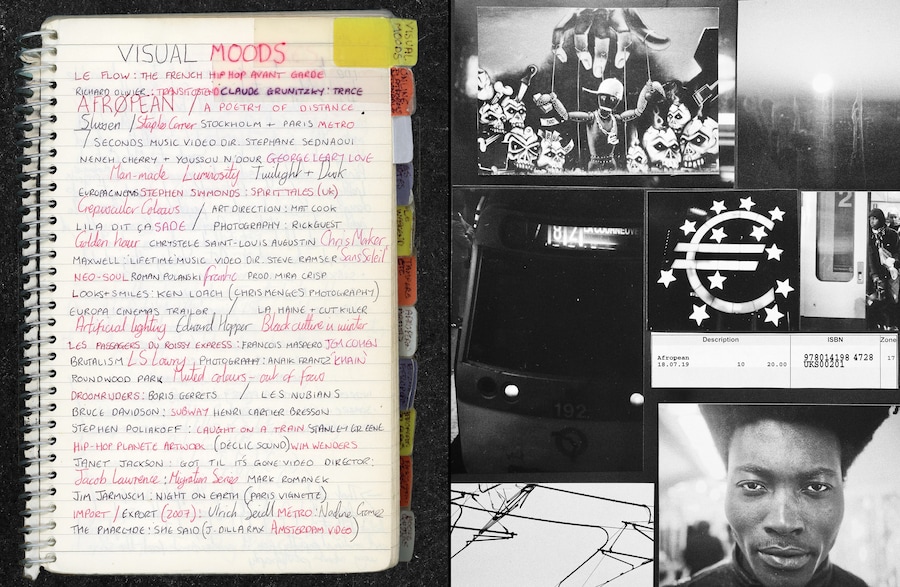 VISUAL MOODS
LE FLOW: THE FRENCH HIP HOP AVANT GARDE
RICHARD OLIVIER: TRANSIT OSTEND CLAUDE GRUNITZKY: TRACE
AFROPEAN / A POETRY OF DISTANCE
Slussen / Staples Corner STOCKHOLM + PARIS METRO
/ SECONDS MUSIC VIDEO DIR. STEPHANE SEDNAOUI
NENEH CHERRY + YOUSSOU N'DOUR GEORGE LEARY LOVE
Man-made Luminosity Twilight + Dusk
EUROPACINEMAS STEPHEN SIMMONDS: SPIRIT TALES (UK)
Crepuscular Colours / ART DIRECTION: MAT COOK
LILA DIT ÇA SADE / PHOTOGRAPHY: RICK GUEST
Golden hour CHRYSTELE SAINT-LOUIS AUGUSTIN Chris Marker
MAXWELL: 'LIFETIME' MUSIC VIDEO DIR. STEVE RAMSER Sans Soleil
NEO-SOUL ROMAN POLANSKI frantic PROD. MIRA CRISP
LOOKS + SMILES: KEN LOACH (CHRIS MENGES PHOTOGRAPHY)
EUROPA CINEMAS TRAILER / LA HAINE + CUT KILLER
Artificial lighting Edward Hopper Black culture in winter
LES PASSAGERS DU ROISSY EXPRESS: FRANCOIS MASPERO JEM COHEN
BRUTALISM LS Lowry PHOTOGRAPHY: ANAIK FRANTZ 'CHAIN'
ROUNDWOOD PARK Muted colours - out of focus
DROOMRUDERS: BORIS GERRETS / LES NUBIANS
BRUCE DAVIDSON: SUBWAY HENRI CARTIER BRESSON
STEPHEN POLIAKOFF: CAUGHT ON A TRAIN STANLEY GREENE
HIP-HOP PLANETE ARTWORK (DÉCLIC SOUND) WIM WENDERS
JANET JACKSON: GOT TIL IT'S GONE VIDEO DIRECTOR:
Jacob Lawrence: Migration Series MARK ROMANEK
JIM JARMUSCH: NIGHT ON EARTH (PARIS VIGNETTE)
IMPORT / EXPORT (2007): Ulrich Seidl METRO: Nadine Gomez
THE PHARCYDE: SHE SAID (J-DILLA RMX AMSTERDAM VIDEO)
VISUAL MOODS
812
LA COURNEUVE
192
2
Description
ISBN
Zone
Afropean
18.07.19
10
20.00
978014198 4728
UKS00201
17